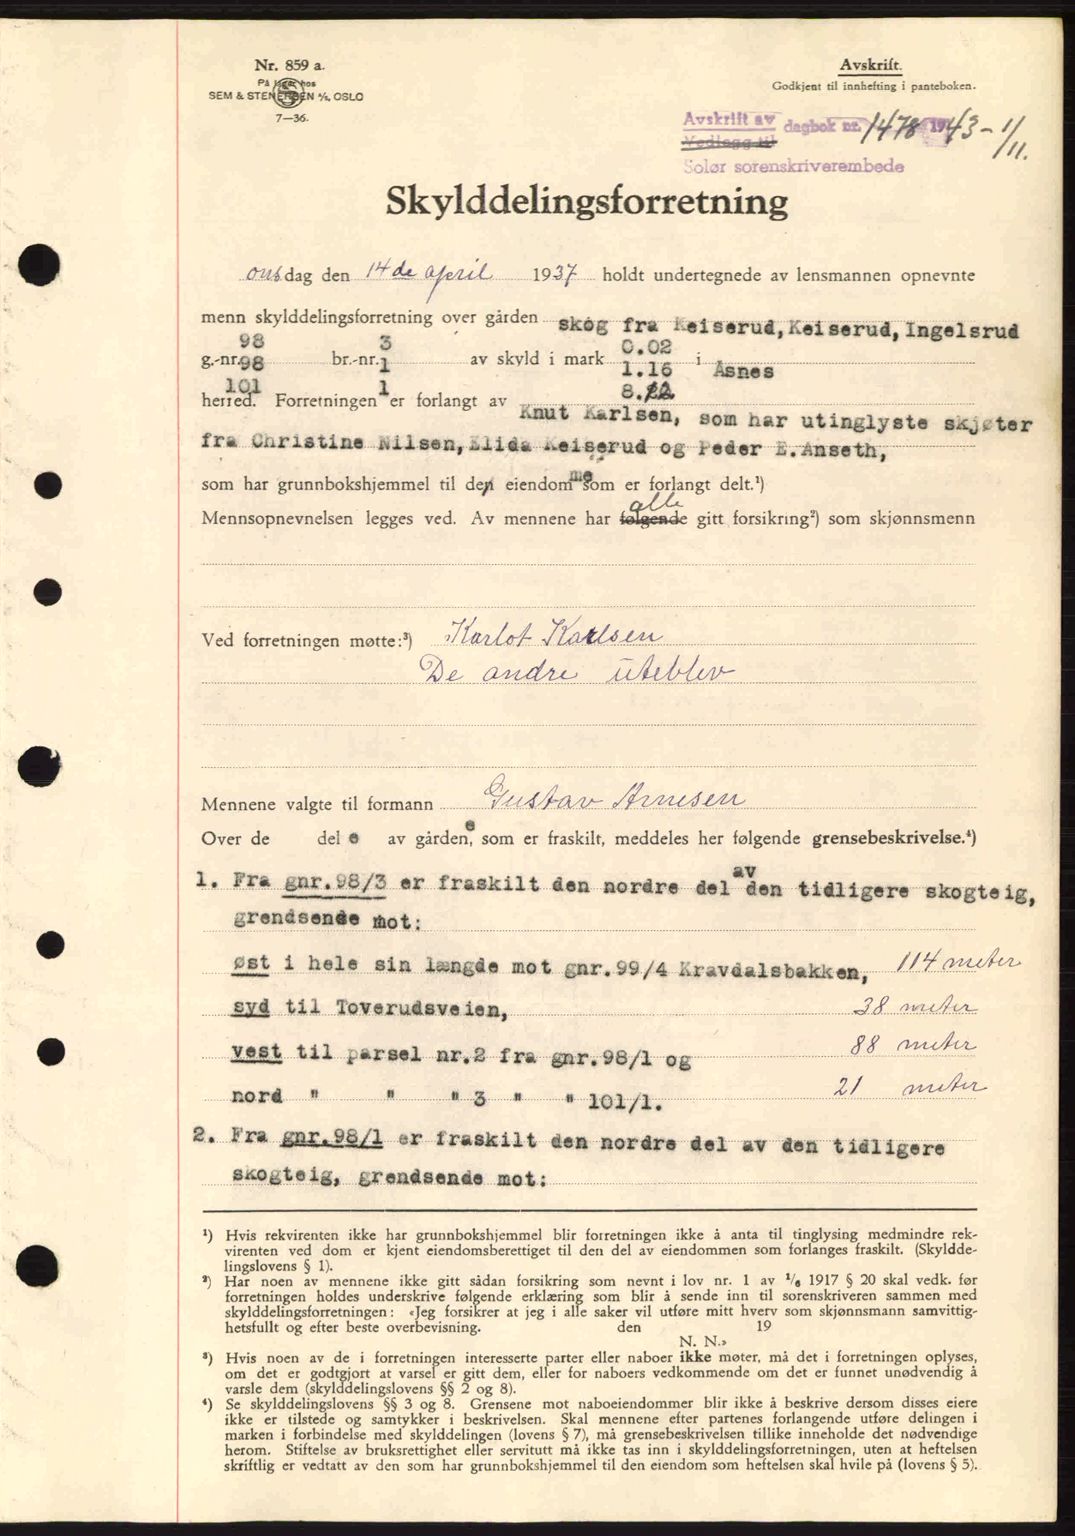 Nr. 859 a.
På lager hos
SEM & STENERSEN A/S, OSLO
7—36.
Avskrift.
Godkjent til innhefting i panteboken.
Avskrift av
Vedlegg til dagbok nr. 1478 1943 - 1/11.
Solør sorenskriverembede
Skylddelingsforretning
onsdag den 14de april 1937 holdt undertegnede av lensmannen opnevnte
menn skylddelingsforretning over gården skog fra Keiserud, Keiserud, Ingelsrud
98 3 0.02
g.-nr. 98 br.-nr. 1 av skyld i mark 1.16 i Åsnes
101 1 8.
herred. Forretningen er forlangt av Knut Karlsen, som har utinglyste skjøter
fra Christine Nilsen, Elida Keiserud og Peder E. Anseth,
som har grunnbokshjemmel til den eiendommene som er forlangt delt.¹)
alle
Mennsopnevnelsen legges ved. Av mennene har følgende gitt forsikring²) som skjønnsmenn
Ved forretningen møtte:³) Karlot Karlsen
De andre uteblev
Mennene valgte til formann Gustav Arnesen
Over de del e av gårdene, som er fraskilt, meddeles her følgende grensebeskrivelse.⁴)
1. Fra gnr. 98/3 er fraskilt den nordre del av den tidligere skogteig,
grendsende mot:
øst i hele sin længde mot gnr. 99/4 Kravdalsbakken, 114 meter
syd til Toverudsveien, 38 meter
vest til parsel nr. 2 fra gnr. 98/1 og 88 meter
nord " " " 3 " " 101/1. 21 meter
2. Fra gnr. 98/1 er fraskilt den nordre del av den tidligere
skogteig, grendsende mot:
¹) Hvis rekvirenten ikke har grunnbokshjemmel blir forretningen ikke å anta til tinglysing medmindre rek-
virenten ved dom er kjent eiendomsberettiget til den del av eiendommen som forlanges fraskilt. (Skyldde-
lingslovens § 1).
²) Har noen av mennene ikke gitt sådan forsikring som nevnt i lov nr. 1 av 1/6 1917 § 20 skal vedk. før
forretningen holdes underskrive følgende erklæring som blir å sende inn til sorenskriveren sammen med
skylddelingsforretningen: «Jeg forsikrer at jeg i alle saker vil utføre mitt hverv som skjønnsmann samvittig-
hetsfullt og efter beste overbevisning. den 19
N. N.»
³) Hvis noen av de i forretningen interesserte parter eller naboer ikke møter, må det i forretningen oplyses,
om det er godtgjort at varsel er gitt dem, eller for naboers vedkommende om det er funnet unødvendig å
varsle dem (skylddelingslovens §§ 2 og 8).
⁴) Se skylddelingslovens §§ 3 og 8. Grensene mot naboeiendommer blir ikke å beskrive dersom disses eiere
ikke er tilstede og samtykker i beskrivelsen. Skal mennene efter partenes forlangende utføre delingen i
marken i forbindelse med skylddelingen (lovens § 7), må grensebeskrivelsen tillike inneholde det nødvendige
herom. Stiftelse av bruksrettighet eller servitutt må ikke tas inn i skylddelingsforretningen, uten at heftelsen
skriftlig er vedtatt av den som har grunnbokshjemmel til den eiendom som heftelsen skal hvile på (lovens § 5).